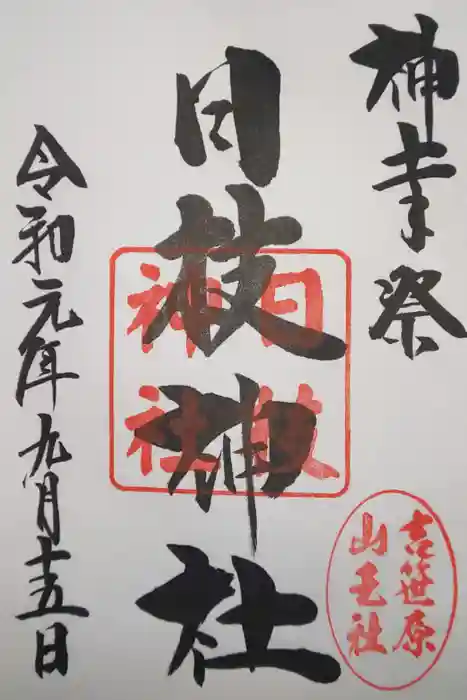 神幸祭
日枝神社
令和元年九月十五日
日枝
神社
吉笹原
山王社